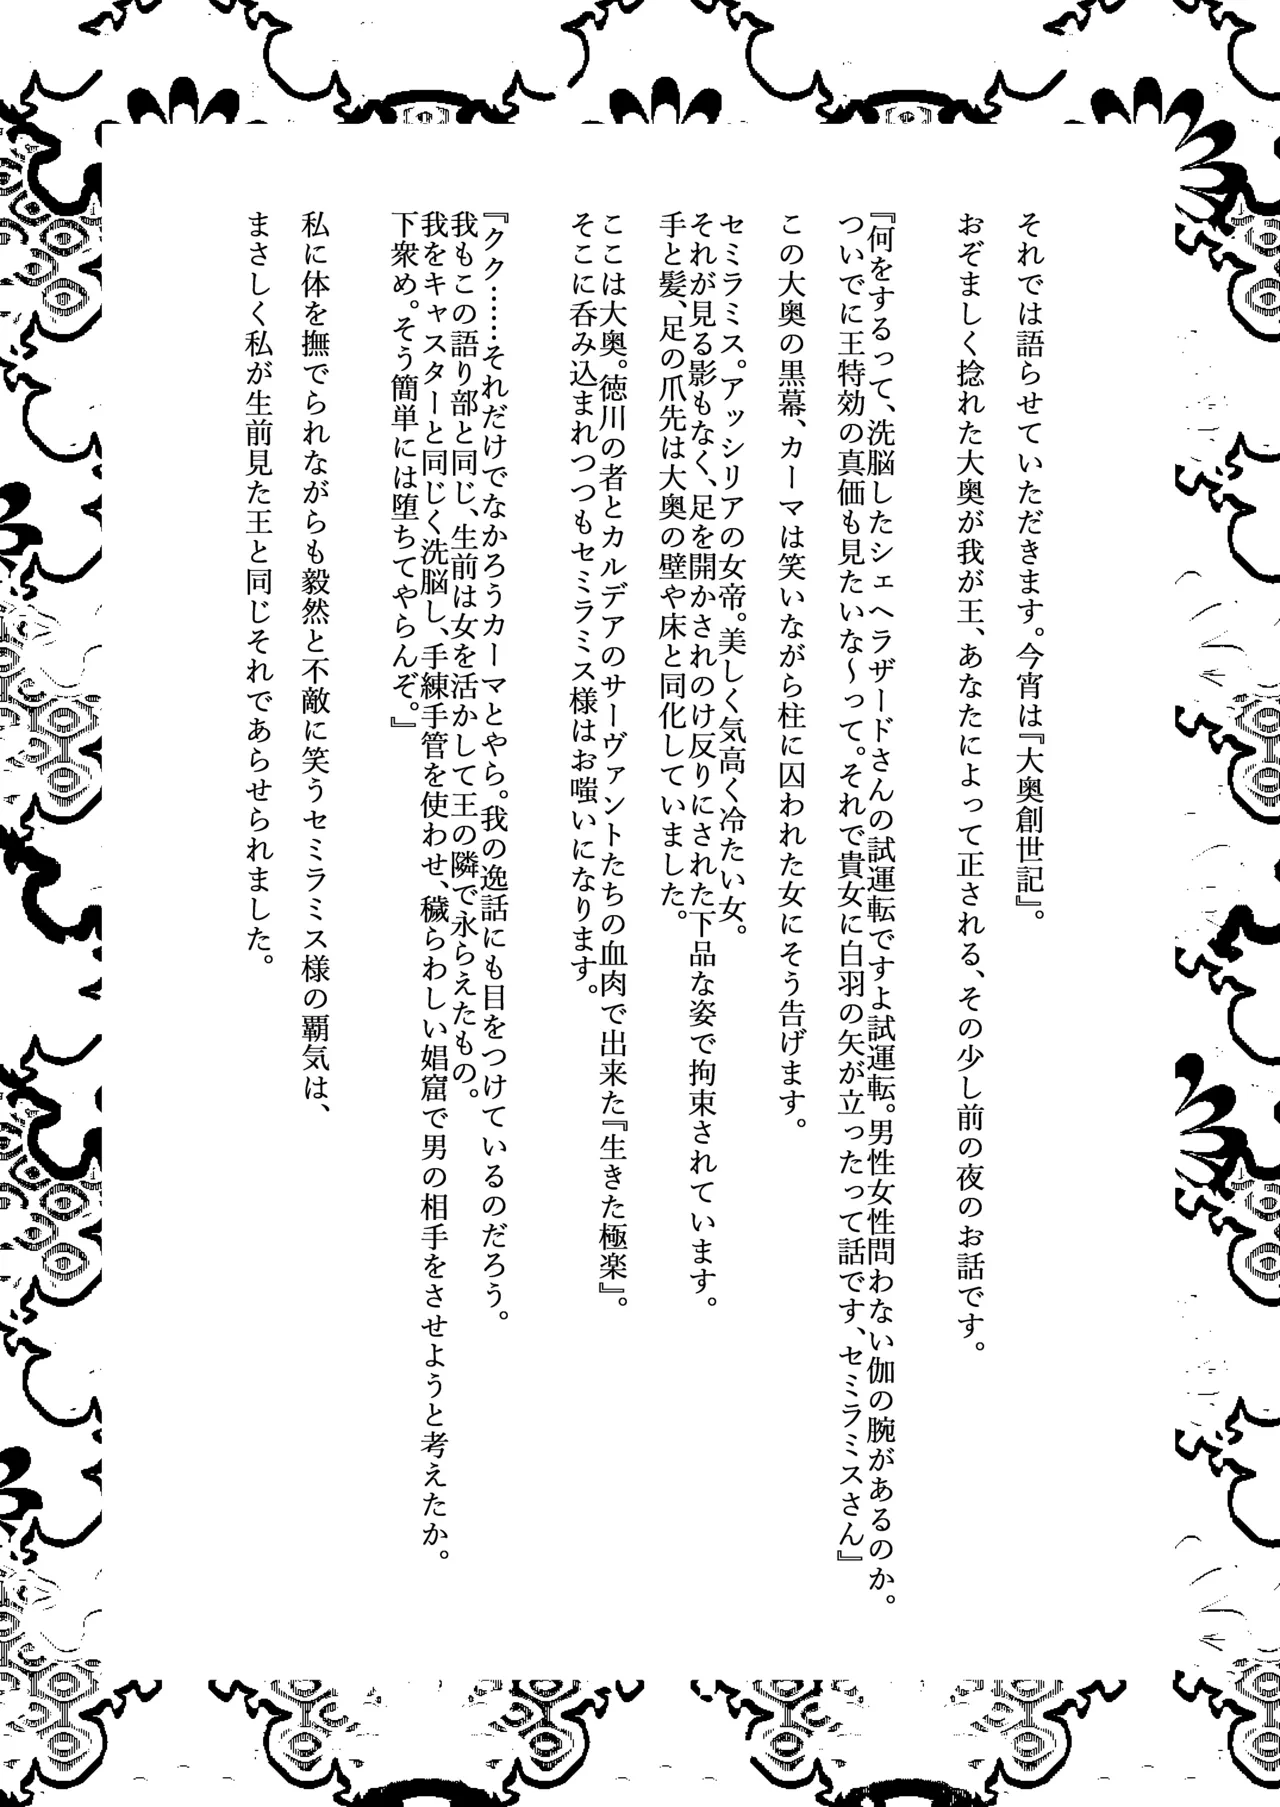 それでは語らせていただきます。今宵は『大奥創世記』。
おぞましく捻れた大奥が我が王、あなたによって正される、その少し前の夜のお話です。
『何をするって、洗脳したシェヘラザードさんの試運転ですよ試運転。男性女性問わない伽の腕があるのか。
ついでに王特効の真価も見たいな～って。それで貴女に白羽の矢が立ったって話です、セミラミスさん』
この大奥の黒幕、カーマは笑いながら柱に囚われた女にそう告げます。
セミラミス。アッシリアの女帝。美しく気高く冷たい女。
それが見る影もなく、足を開かされのけ反りにされた下品な姿で拘束されています。
手と髪、足の爪先は大奥の壁や床と同化していました。
ここは大奥。徳川の者とカルデアのサーヴァントたちの血肉で出来た『生きた極楽』。
そこに呑み込まれつつもセミラミス様はお嗤いになります。
『クク……それだけでなかろうカーマとやら。我の逸話にも目をつけているのだろう。
我もこの語り部と同じ、生前は女を活かして王の隣で永らえたもの。
我をキャスターと同じく洗脳し、手練手管を使わせ、穢らわしい娼窟で男の相手をさせようと考えたか。
下衆め。そう簡単には堕ちてやらんぞ。』
私に体を撫でられながらも毅然と不敵に笑うセミラミス様の覇気は、
まさしく私が生前見た王と同じそれであらせられました。